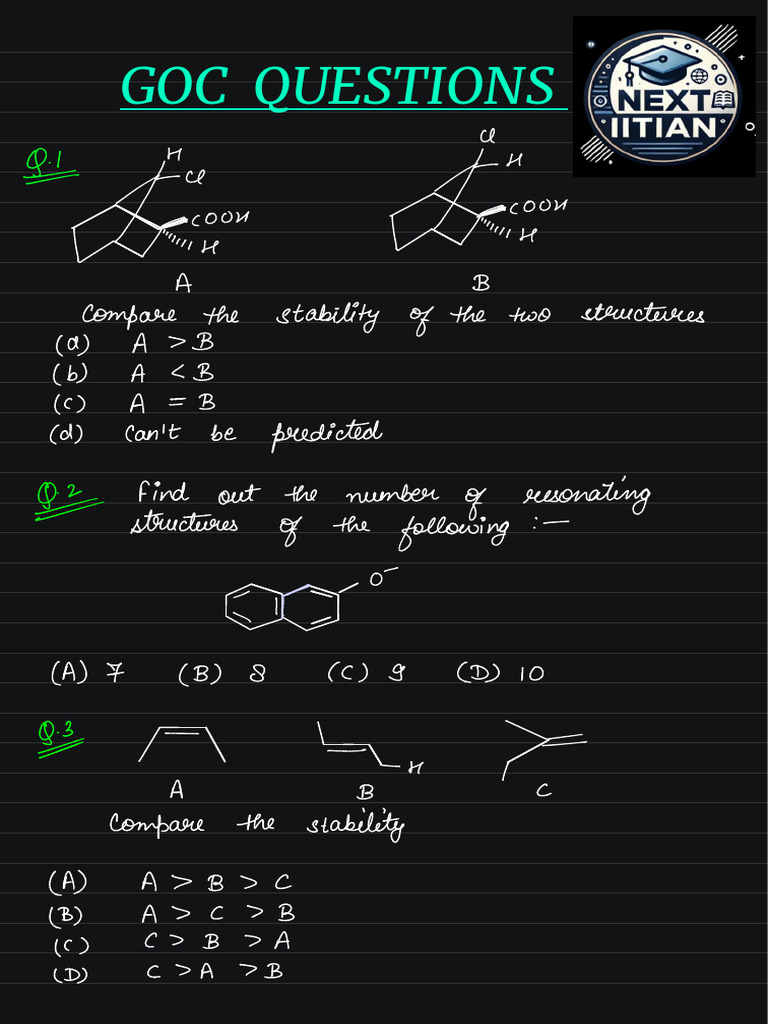 GOC QUESTIONS
NEXT
IITIAN
Q.1
H
Cl
COOH
H
A
Cl
H
COOH
H
B
Compare the stability of the two structures
(a) A > B
(b) A < B
(c) A = B
(d) Can't be predicted
Q.2 Find out the number of resonating
structures of the following :—
O⁻
(A) 7 (B) 8 (C) 9 (D) 10
Q.3
H
A B C
Compare the stability
(A) A > B > C
(B) A > C > B
(C) C > B > A
(D) C > A > B